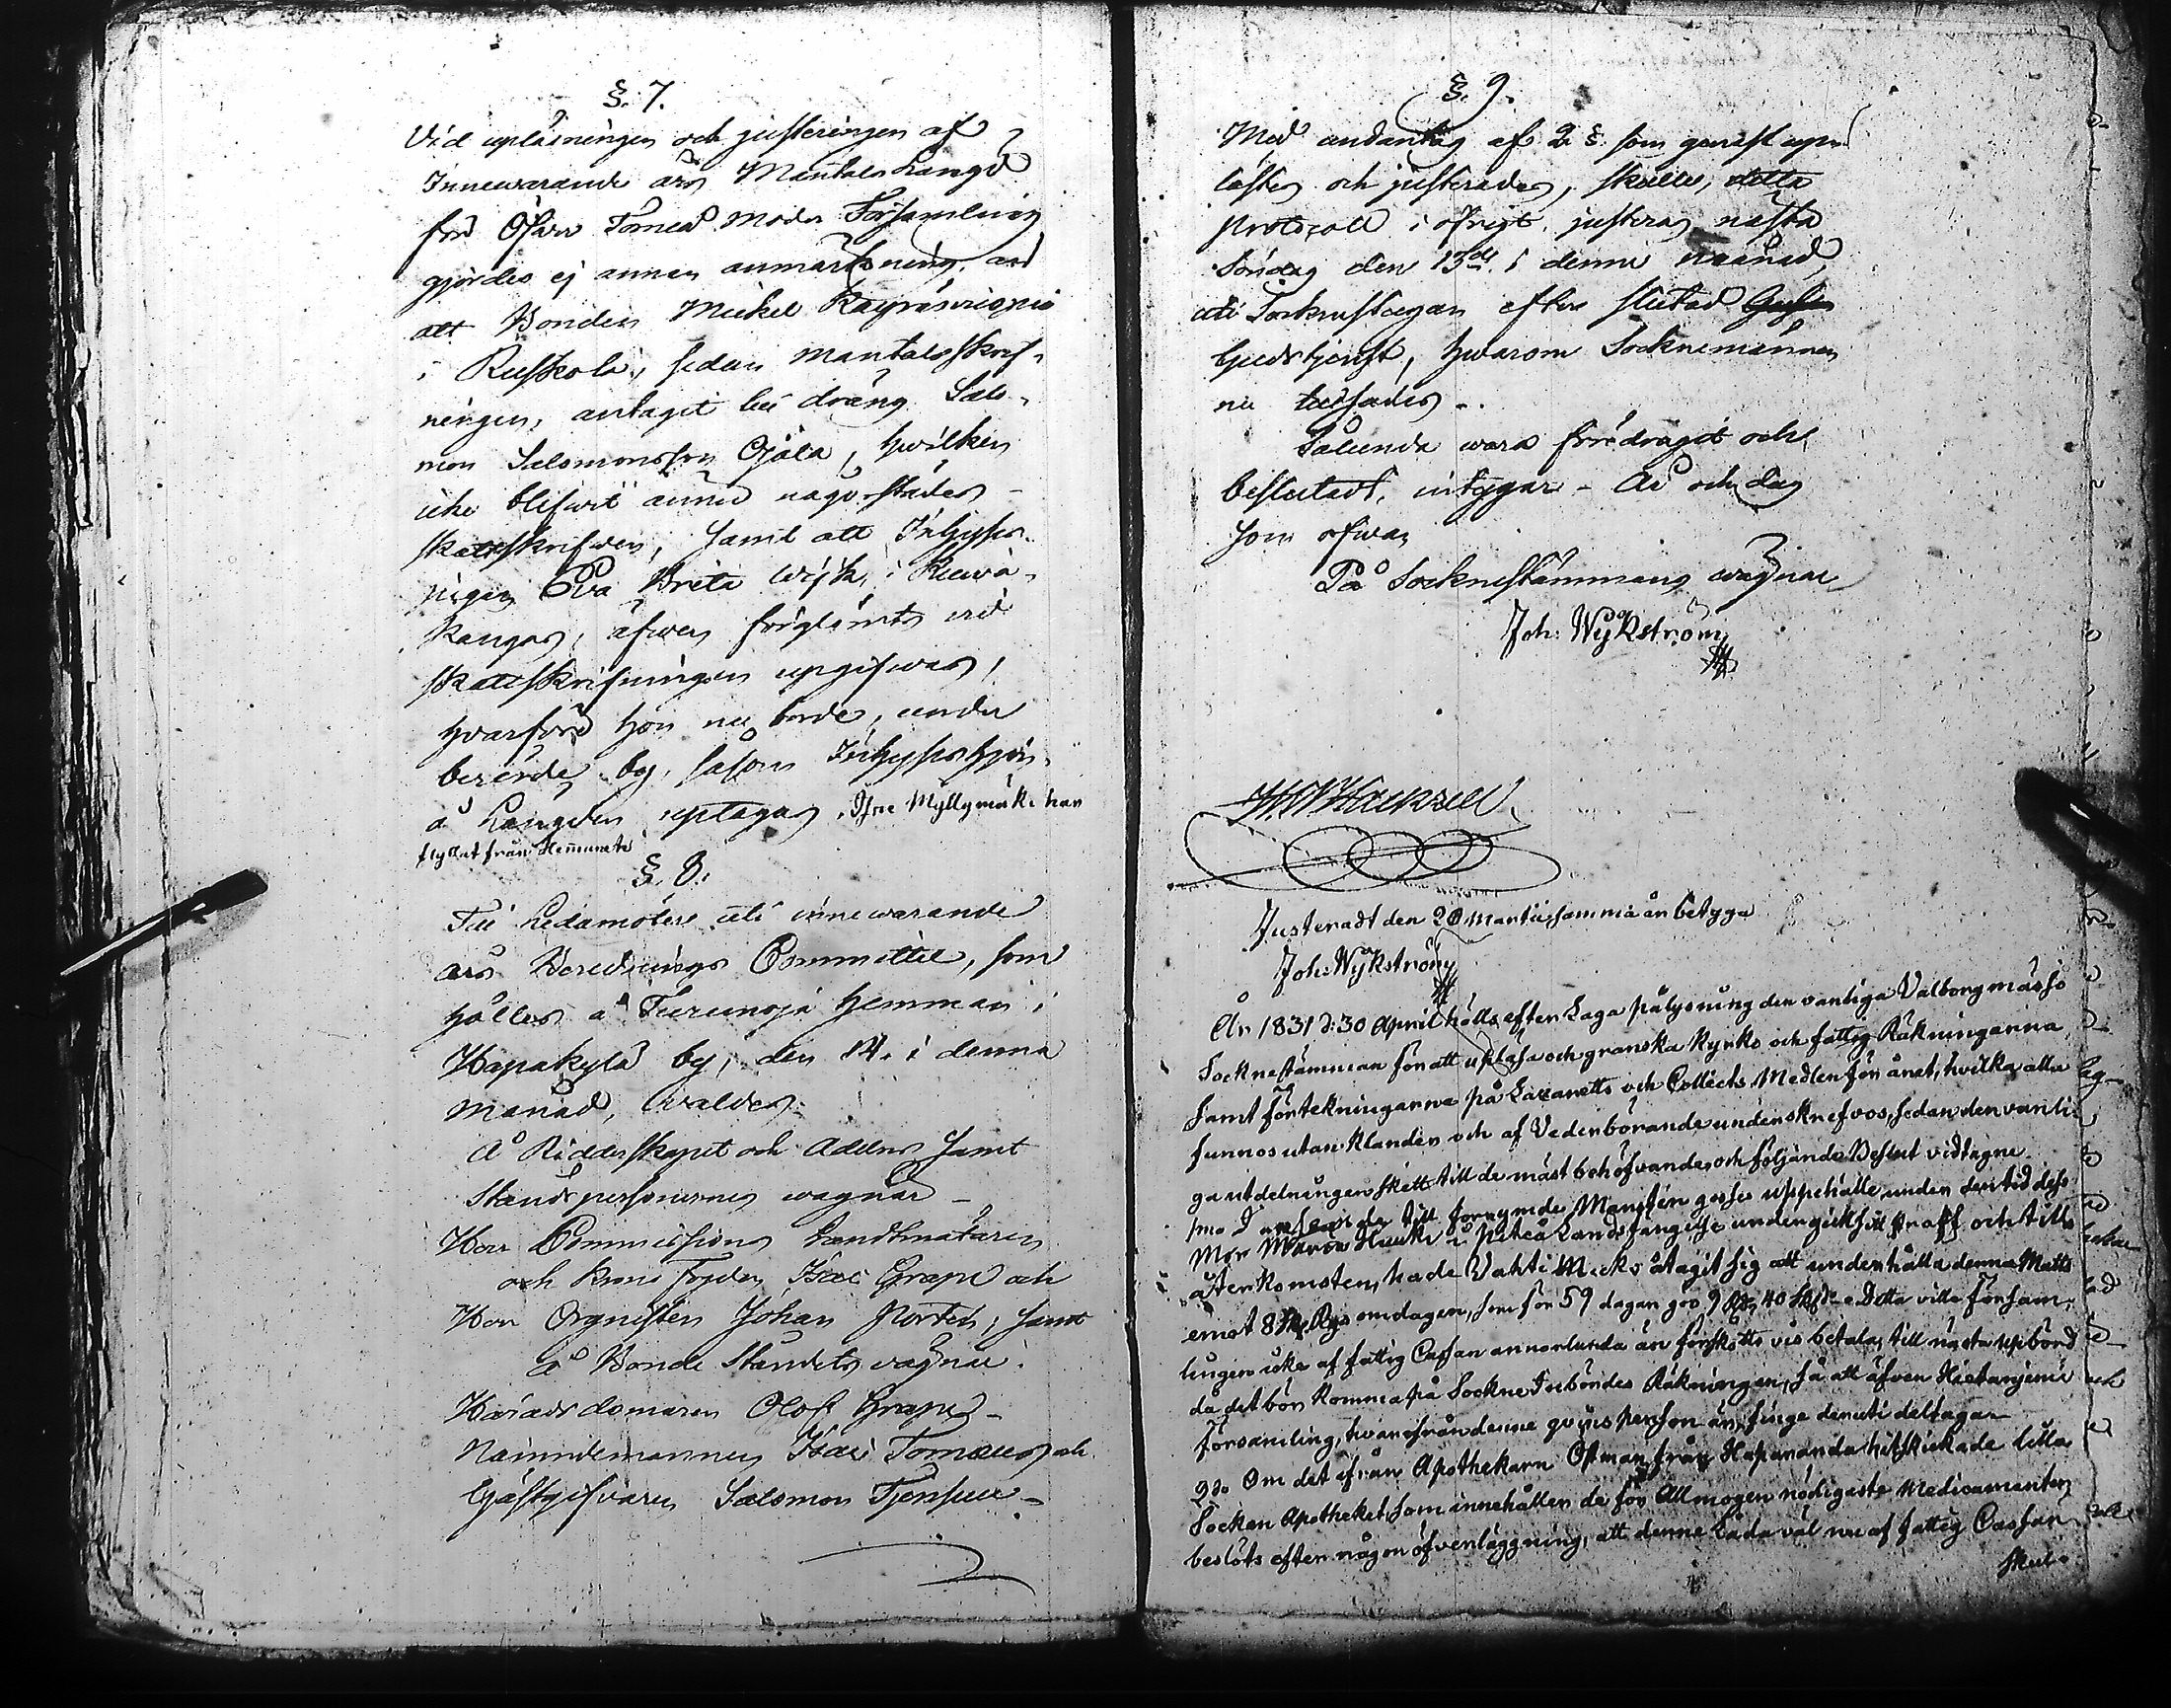 §. 7.
Vid upläsningen och justeringen af
Innewarande års Mantals Längd
för Öfver Torneå Moder Församling
gjordes ej annan anmärkning, än
att Bonden Mickel
i Ruskola, sedan Mantalsskrif-
ningen, antagit til dräng Salo-
mon Salomonsson Ojala, hwilken
icke blifwit ännu någorstädes
skattskrifwen, samt att Inhyses
pigan Eva Brita Wijk, i Kuiwa-
kangas, äfwen förglömts wid
skattskrifningen upgifwas,
hvarföre hon nu borde, under
berörde by, såsom Inhyses hjon,
å Längden uptagas. Isac Myllymäki har
flyttat från
§. 8.
Till Ledamöter uti innewarande
års Berednings Committée, som
hålles å Turunoja hemman i
Hapakylä by, den 14. i denna
Månad, waldes
å Ridderskapet och Adelns samt
Ståndspersonernes wägnar
Herr Commissions Landtmätaren
och Krono Fogden Isac Grape och
Herr Orgnisten Johan Portin, samt
å Bonde Ståndets wägnar.
Häradsdomaren Olof Grape
Nämndemannen Isac Tornæus och
Gästgifvaren Salomon
§. 9.
Med undantag af 2 §. som genast upp-
lästes och justerades, skulle, detta
Protocoll i öfrigt, justeras nästa
Söndag den 13de i denne månad,
uti Sockenstugan efter slutad
Gudstjenst, hwarom Socknemännen
nu
Sålunda wara föredragit och
beslutadt, intygar - År och dag
som ofwan
På Socknestämmans wägnar
Joh: Wijkström
Justeradt den 20 Martii samma år betyga
Joh: Wijkström
År 1831 d: 30 April hölls efter Laga pålysning den vanliga Valborgmässo
Sockne stämman för att uplæsa och granska Kyrko och fattig Räkningarna
samt förtekningarne på Lazaretts och Collects Medlen för året, hvilka alla
funnos utan klander och af Vederbörande underskrefvos, sedan den vanli-
ga utdelningen skett till de mäst behöfvande, och följande Beslut vidtagne
1mo I anseende till gosses uppehälle under den tid dess
Mor Maria i Piteå Landsfängelse undergick sitt straff och till
återkomsten, hade Vahti åtagit sig att underhålla denna Matts
emot 8 om dagen, som för 59 dagar gör 9 40 Detta ville Försam-
lingen icke af fattig Cassan annorlunda än förskotts vis betala, till nästa upbörd
då det bör komma på Sockne Inbördes Räkningen, så att äfven Hietaniemi
Församling, hvarifrån denne qvinsperson är, finge deruti deltaga
2do Om det ifrån Apothekarn Östman från Haparanda hitskickade lilla
Socken Apotheket, som innehåller de för Allmogen nödigaste Medicamenter
beslöts efter någon öfverläggning, att denne Låda väl nu af fattig Cassan
skul-